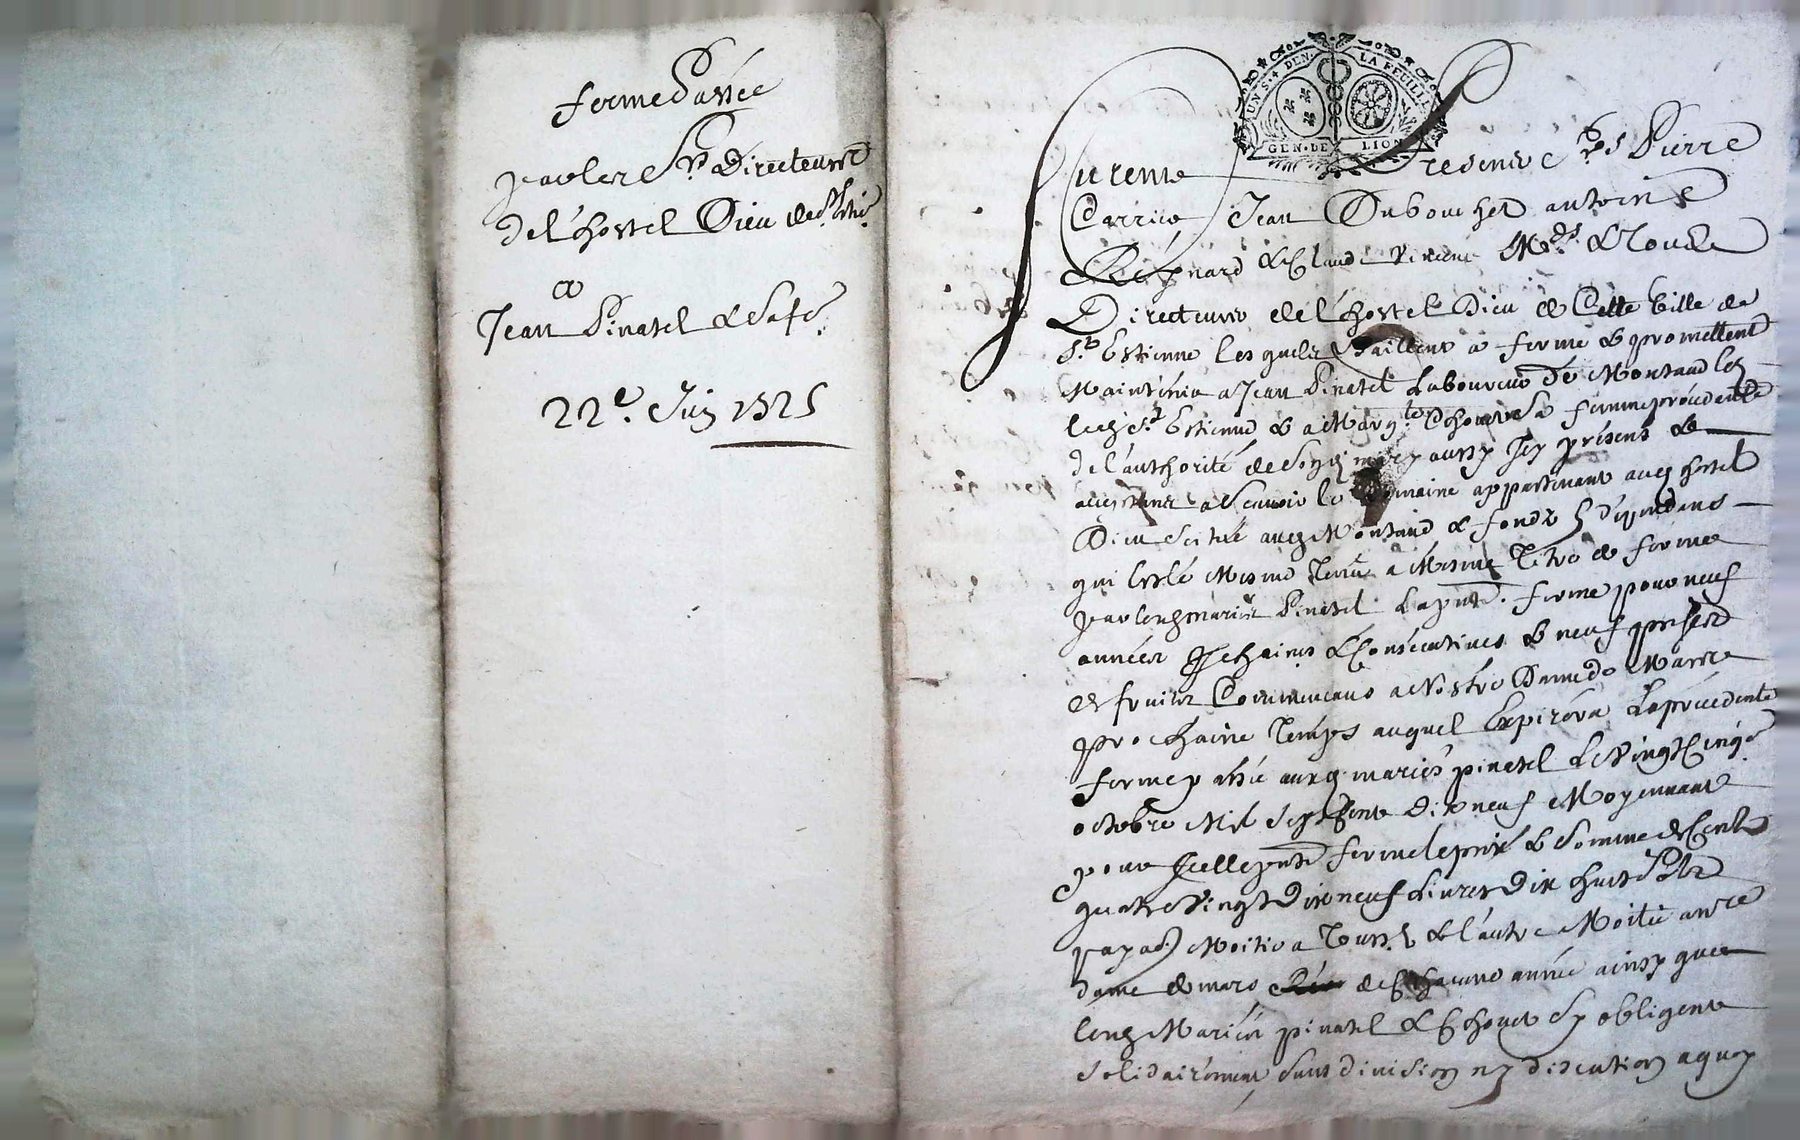 ferme Passée
par les Srs Directeurs
de l'hostel Dieu de St Estie
a
Jean Pinatel & sa fe.
22e. Juin 1725
UN S. 4 DEN. LA FEUILLE
GEN. DE LION
Furent Presents Srs Pierre
Carrier Jean Dubouchet antoine
Reynard & Claude Vincent Mds & Tous
Directeurs de l'hostel Dieu de Cette Ville de
St Estienne lesquels Baillent a ferme & promettent
Maintenir a Jean Pinatel Laboureur de Montaud les
led St Estienne & a Margte Chouvet sa femme procedante
de l'authorité de sond mary aussy Icy présent &
acceptant a Scavoir le Domaine appartenant aud hostel
Dieu scitué aud Montaud & fonds En dépendans
qui Est le Mesme Tenu a Mesme Titre de ferme
par lesd mariés Pinatel Laditte ferme pour neuf
années prochaines & Consécutives & neuf prises
et fruits Commencans a Nostre Dame de Mars
prochaine Temps auquel Expirera La précédente
ferme passée auxd. mariés pinatel Le Vingt Cinqe
octobre Mil Sept Cents Dix neuf Moyennant
pour Icelle pnte ferme le prix & Somme de Cent
quatre Vingt Dix neuf Livres Dix huit Sols
payab. Moitié a Touss.t & l'autre Moitié nre
dame de mars de Chacune année ainsy que
lesd Mariés pinatel & Chouvet sy obligent
solidairement sans division ny discution a quoy